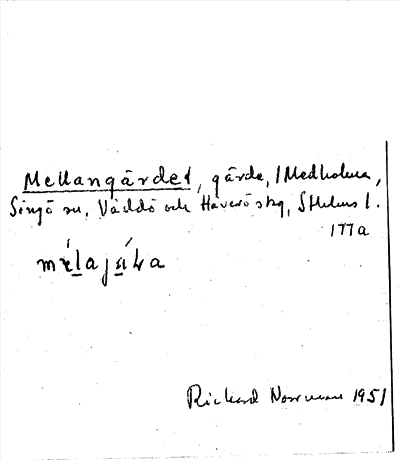 Mellangärdet, gärde, / Medholma,
Singö sn, Väddö och Häverö skg, Sthlms l.
177a
mèlajǽka
Richard Norrman 1951